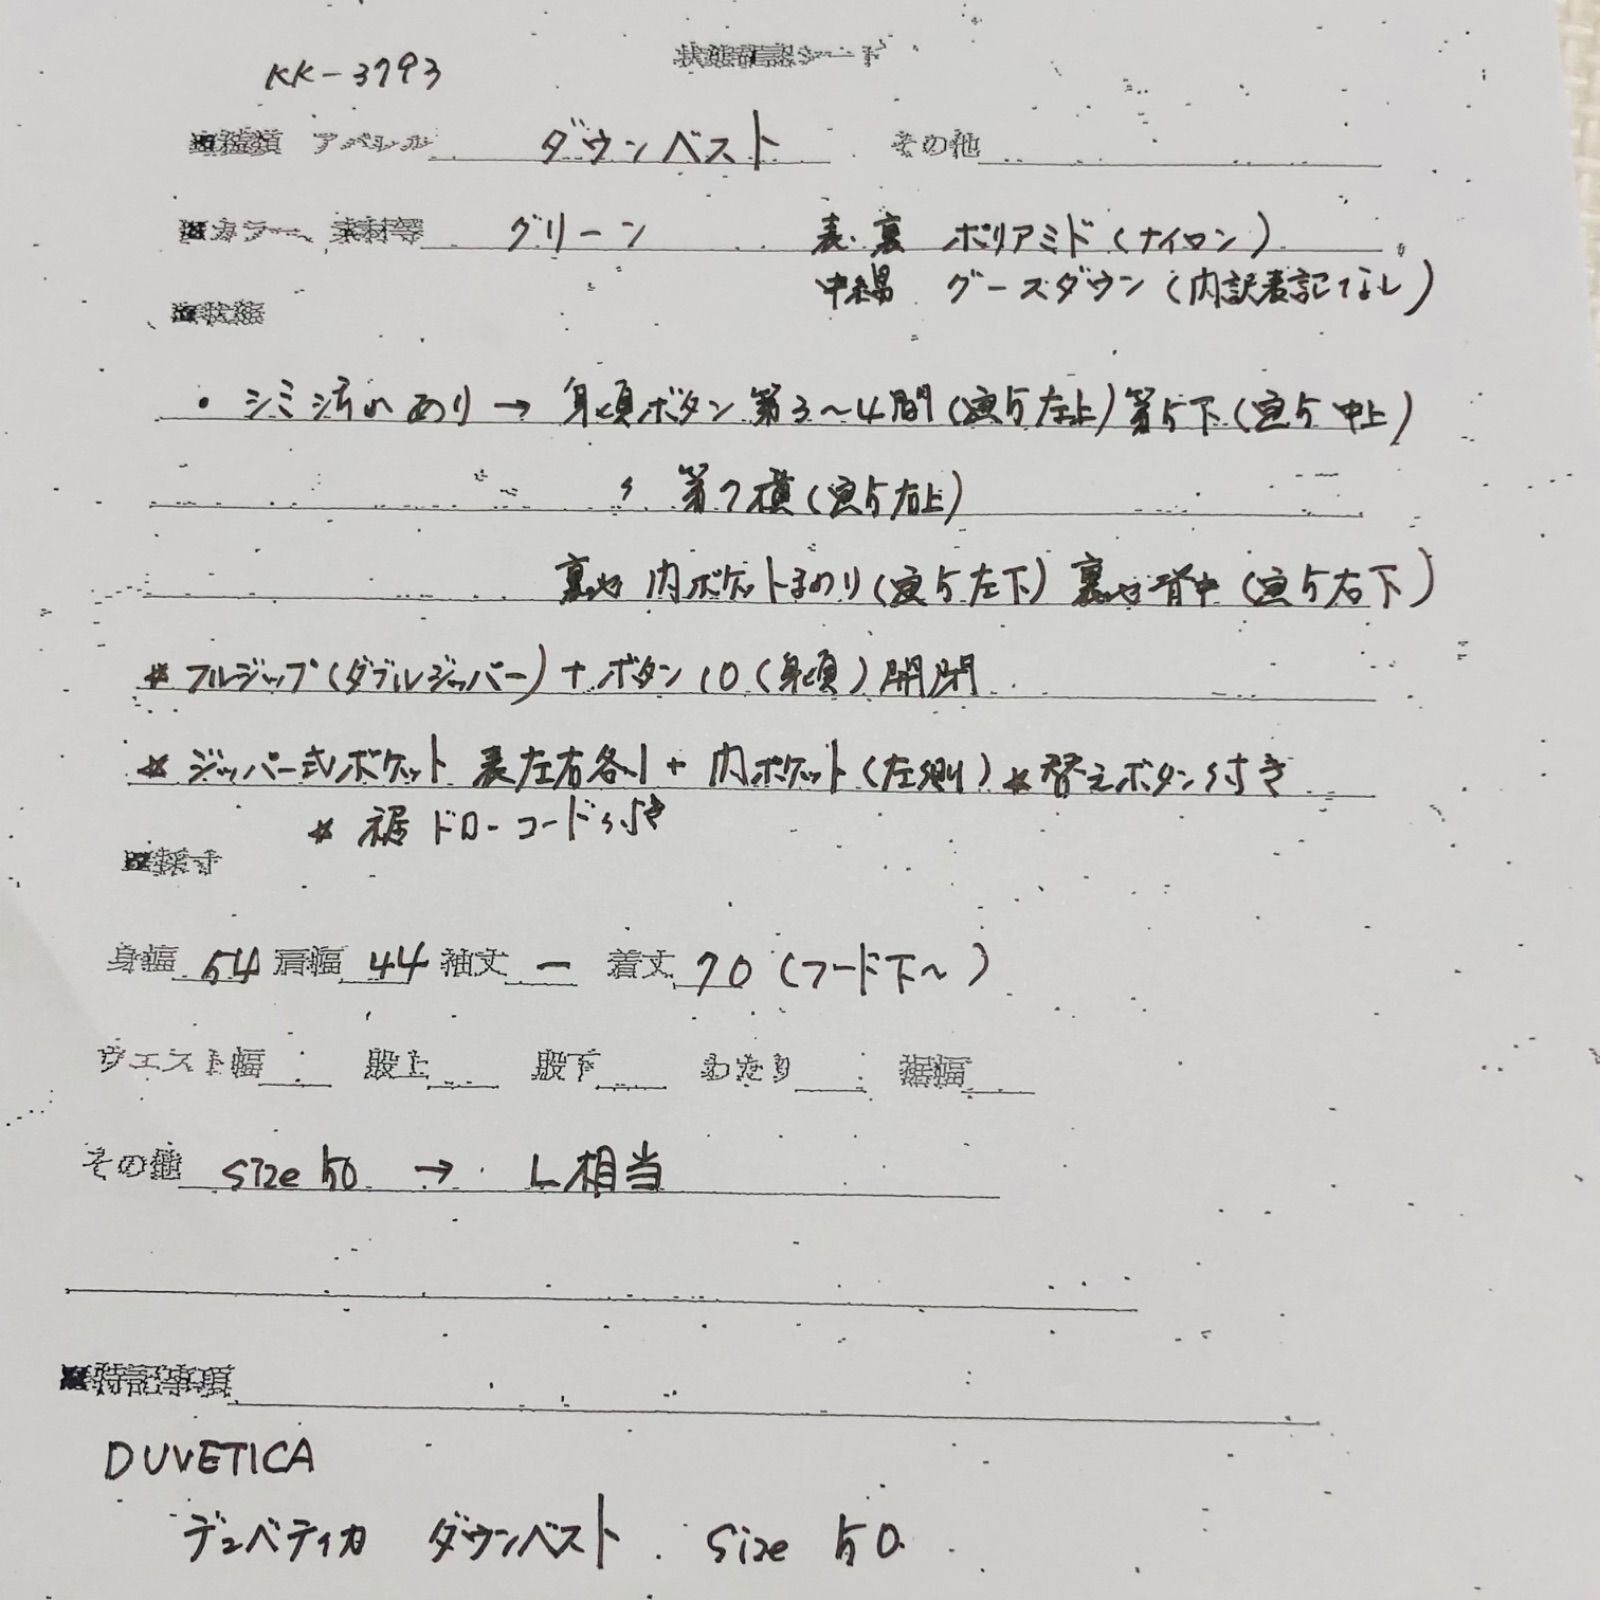 状態確認シート
KK-3793
■種類 アパレル ダウンベスト その他
■カラー、素材等 グリーン 表・裏 ポリアミド(ナイロン)
中綿 グースダウン(内訳表記なし)
■状態
・シミ汚れあり→身頃ボタン第3～4間(写5左上)第5下(写5中上)
〃 第7横(写5右上)
裏地 内ポケットまわり(写5左下) 裏地背中(写5右下)
* フルジップ(ダブルジッパー)+ボタン10(身頃)開閉
* ジッパー式ポケット 表左右各1+内ポケット(左側) * 替えボタン付き
* 裾ドローコード付き
■採寸
身幅 54 肩幅 44 袖丈 ー 着丈 70 (フード下～)
ウエスト幅 股上 股下 わたり 裾幅
その他 size 50 → L相当
■特記事項
DUVETICA
デュベティカ ダウンベスト size 50